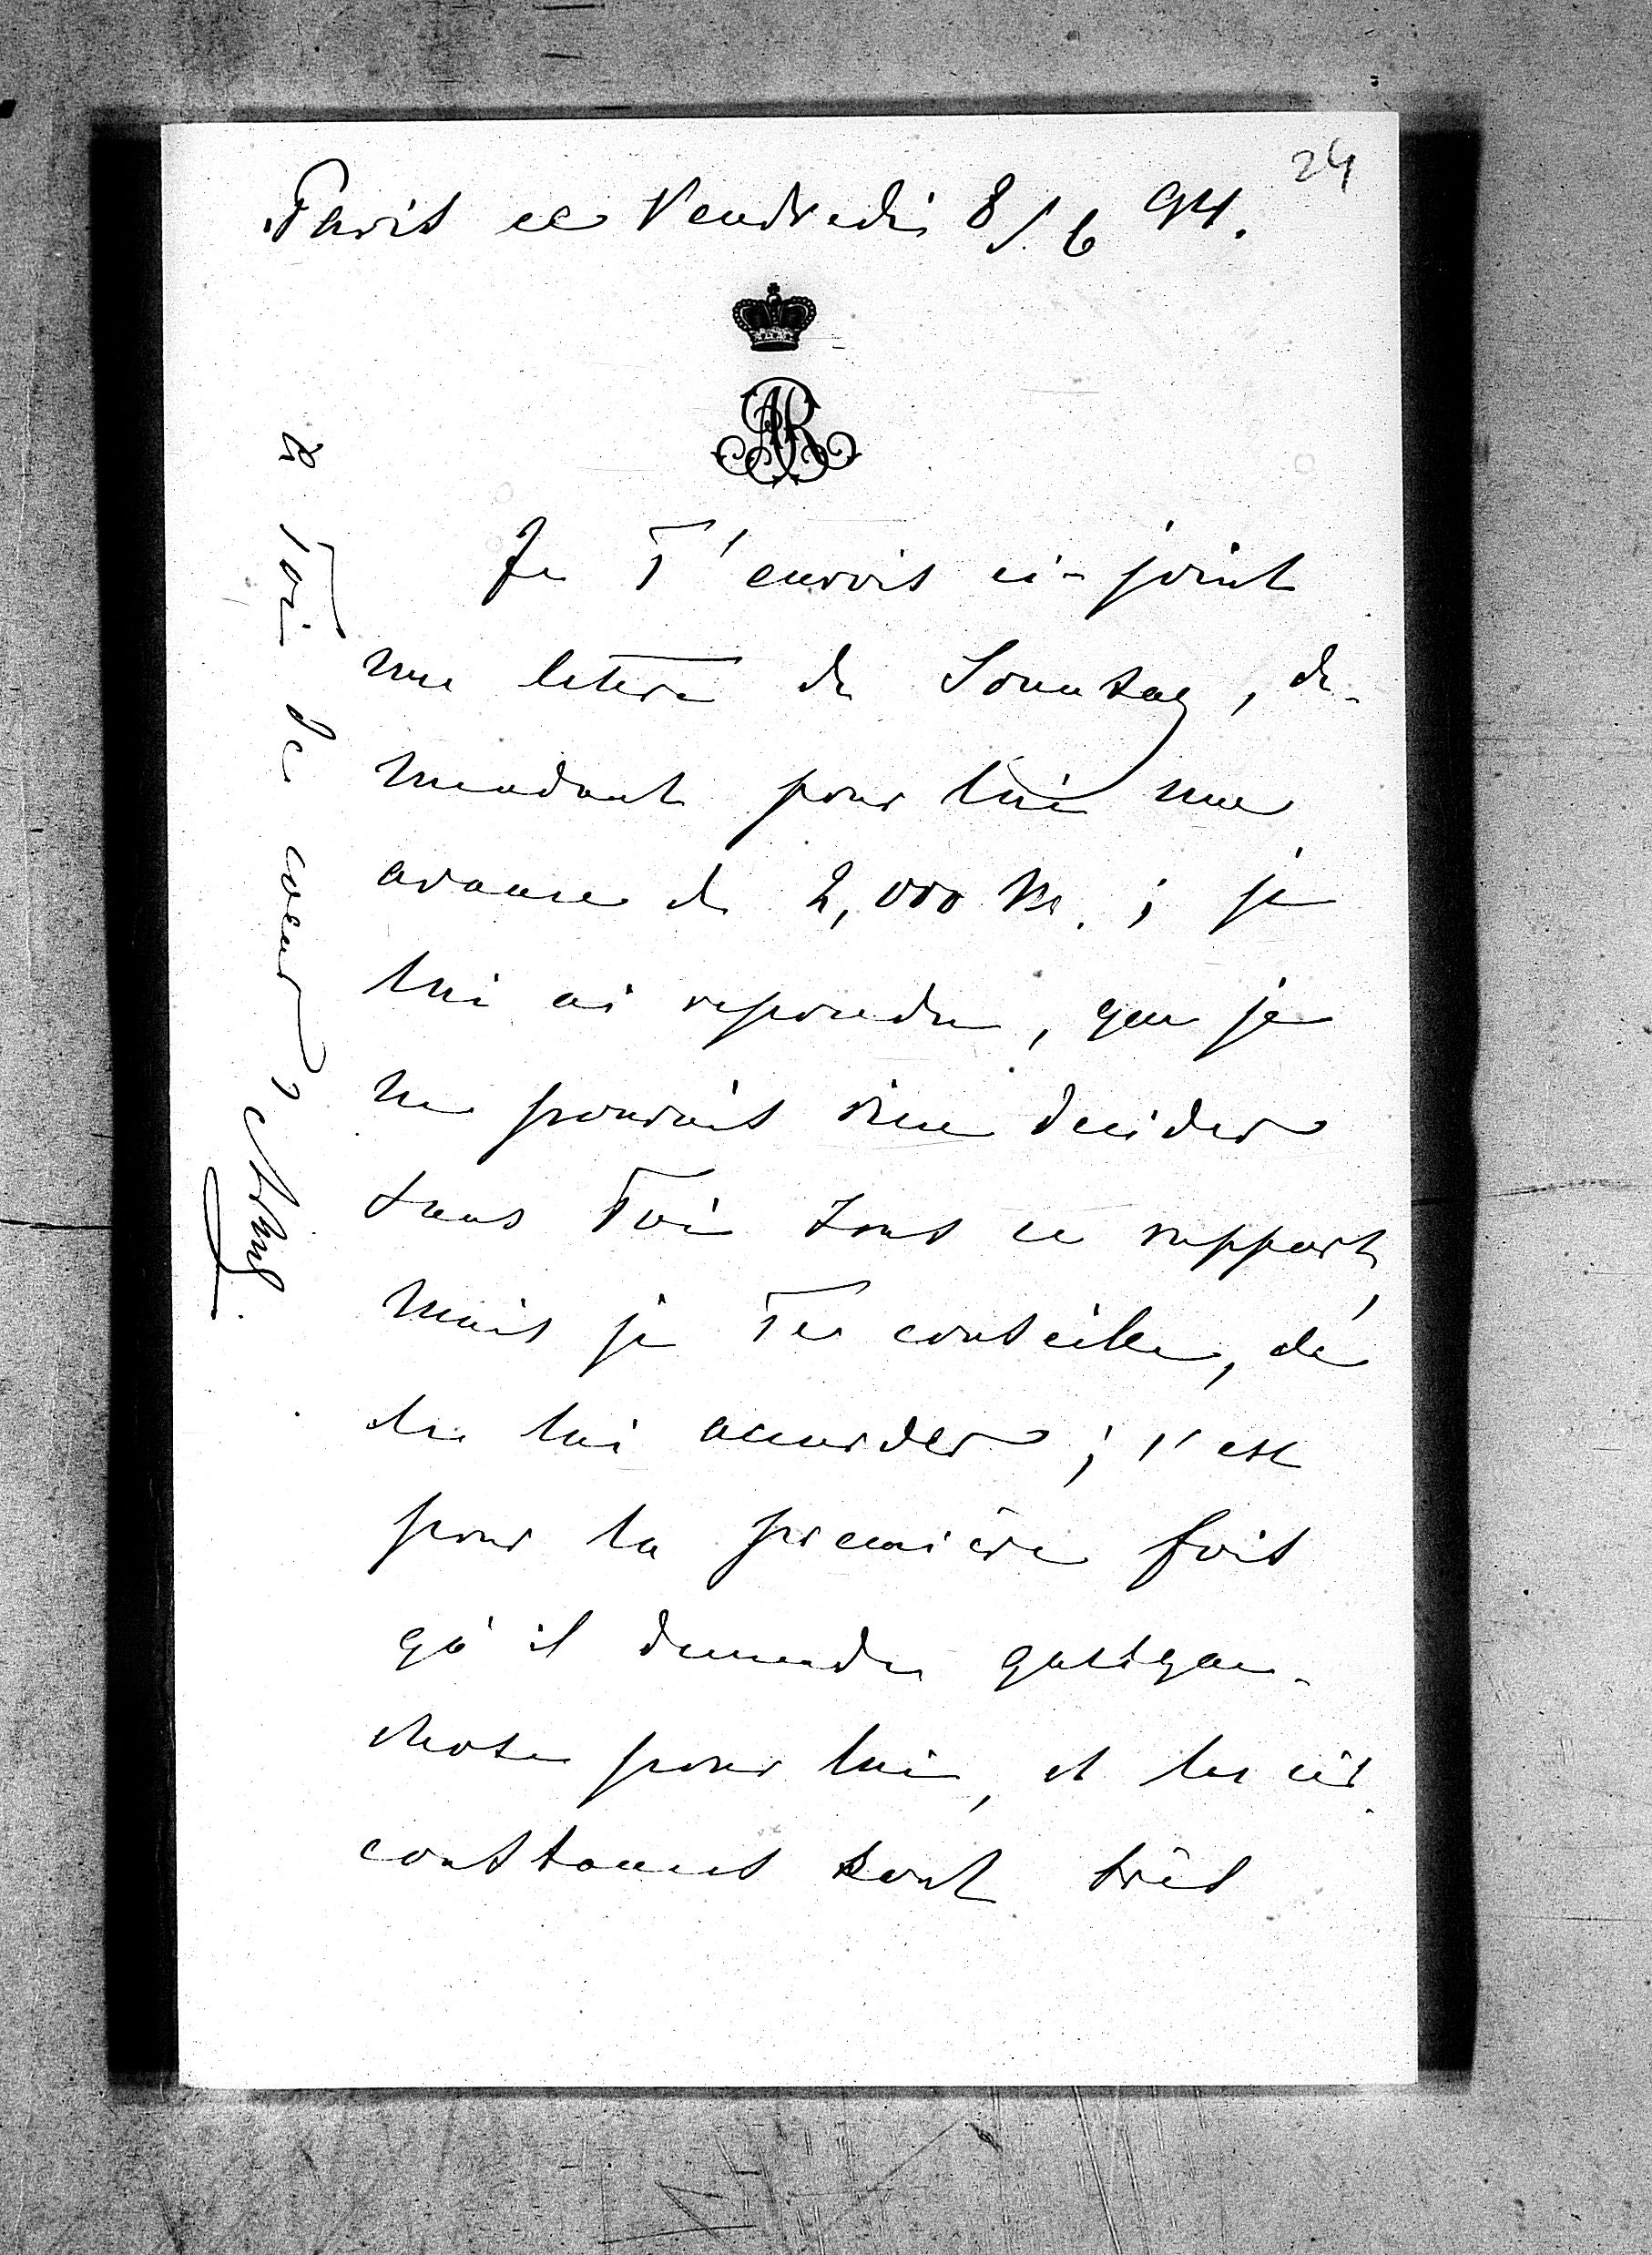 24
Paris ce Vendredi 8/6 94.
AR
Je T'envois ci-joint
une lettre de Sonntag, de-
mandant pour lui une
avance de 2,000 M. ; je
lui ai repondu, que je
ne pourrais rien decider
sans Toi sous ce rapport,
mais je Te conseille, de
les lui accorder ; c'est
pour la première fois
qu'il demande quelque-
chose pour lui, et les cir-
constances sont très
à Toi de coeur,